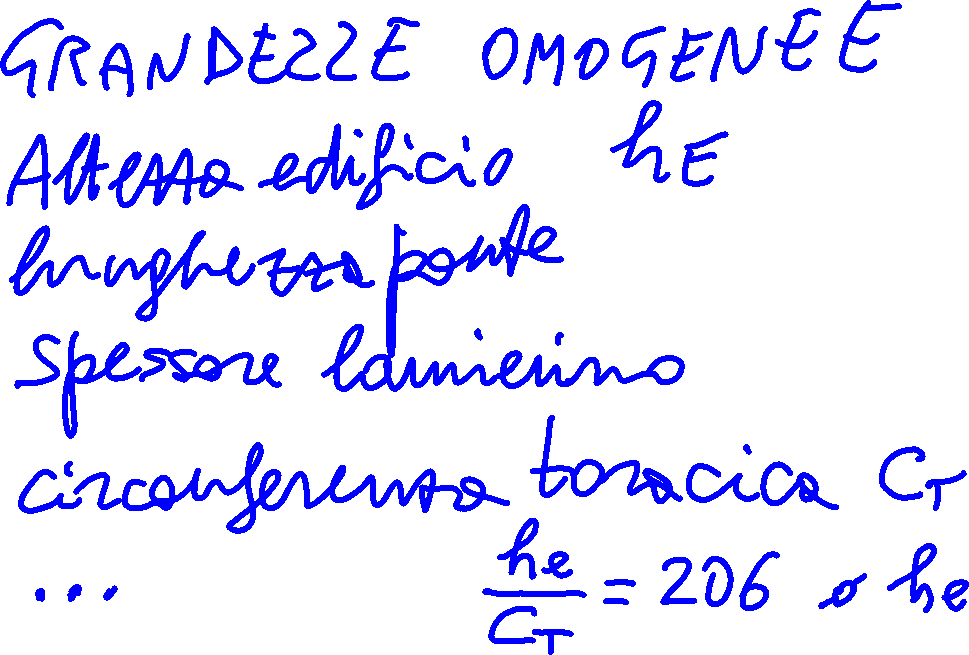 GRANDEZZE OMOGENEE
Altezza edificio hE
lunghezza ponte
spessore lamierino
circonferenza toracica CT
... he/CT = 206 o he